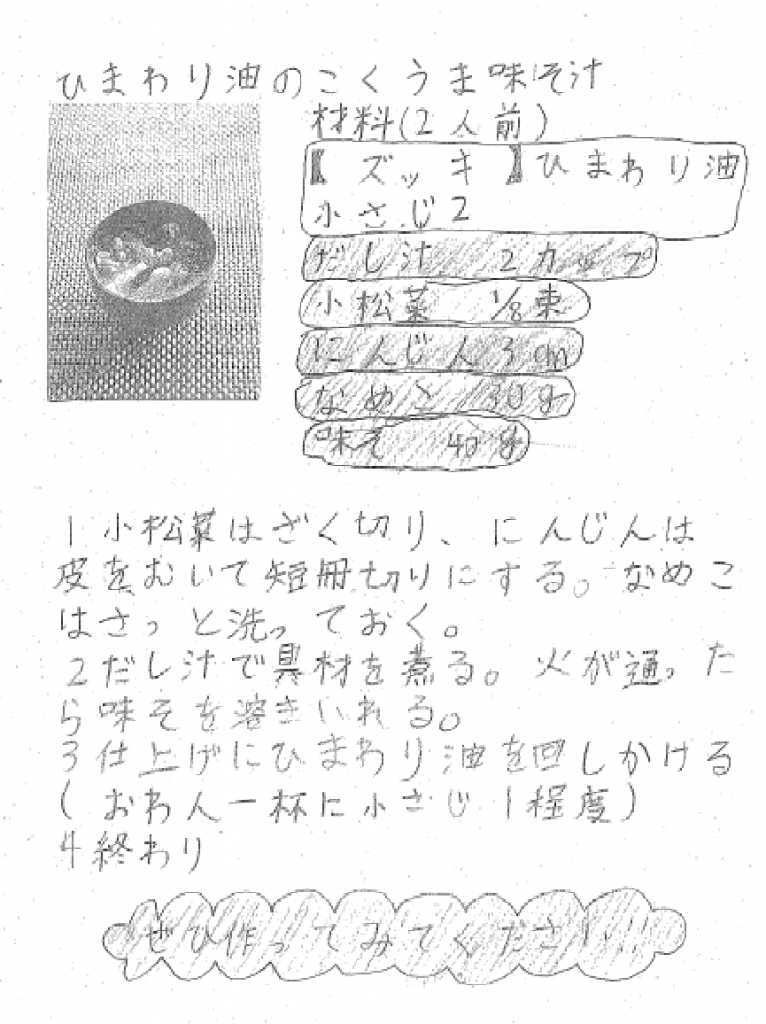 ひまわり油のこくうま味そ汁
材料(2人前)
【ズッキ】ひまわり油
小さじ2
だし汁 2カップ
小松菜 1/8束
にんじん3cm
なめこ 30g
味そ 40g
1小松菜はざく切り、にんじんは
皮をむいて短冊切りにする。なめこ
はさっと洗っておく。
2だし汁で具材を煮る。火が通った
ら味そを溶きいれる。
3仕上げにひまわり油を回しかける
(おわん一杯に小さじ1程度)
4終わり
ぜひ作ってみてください!!